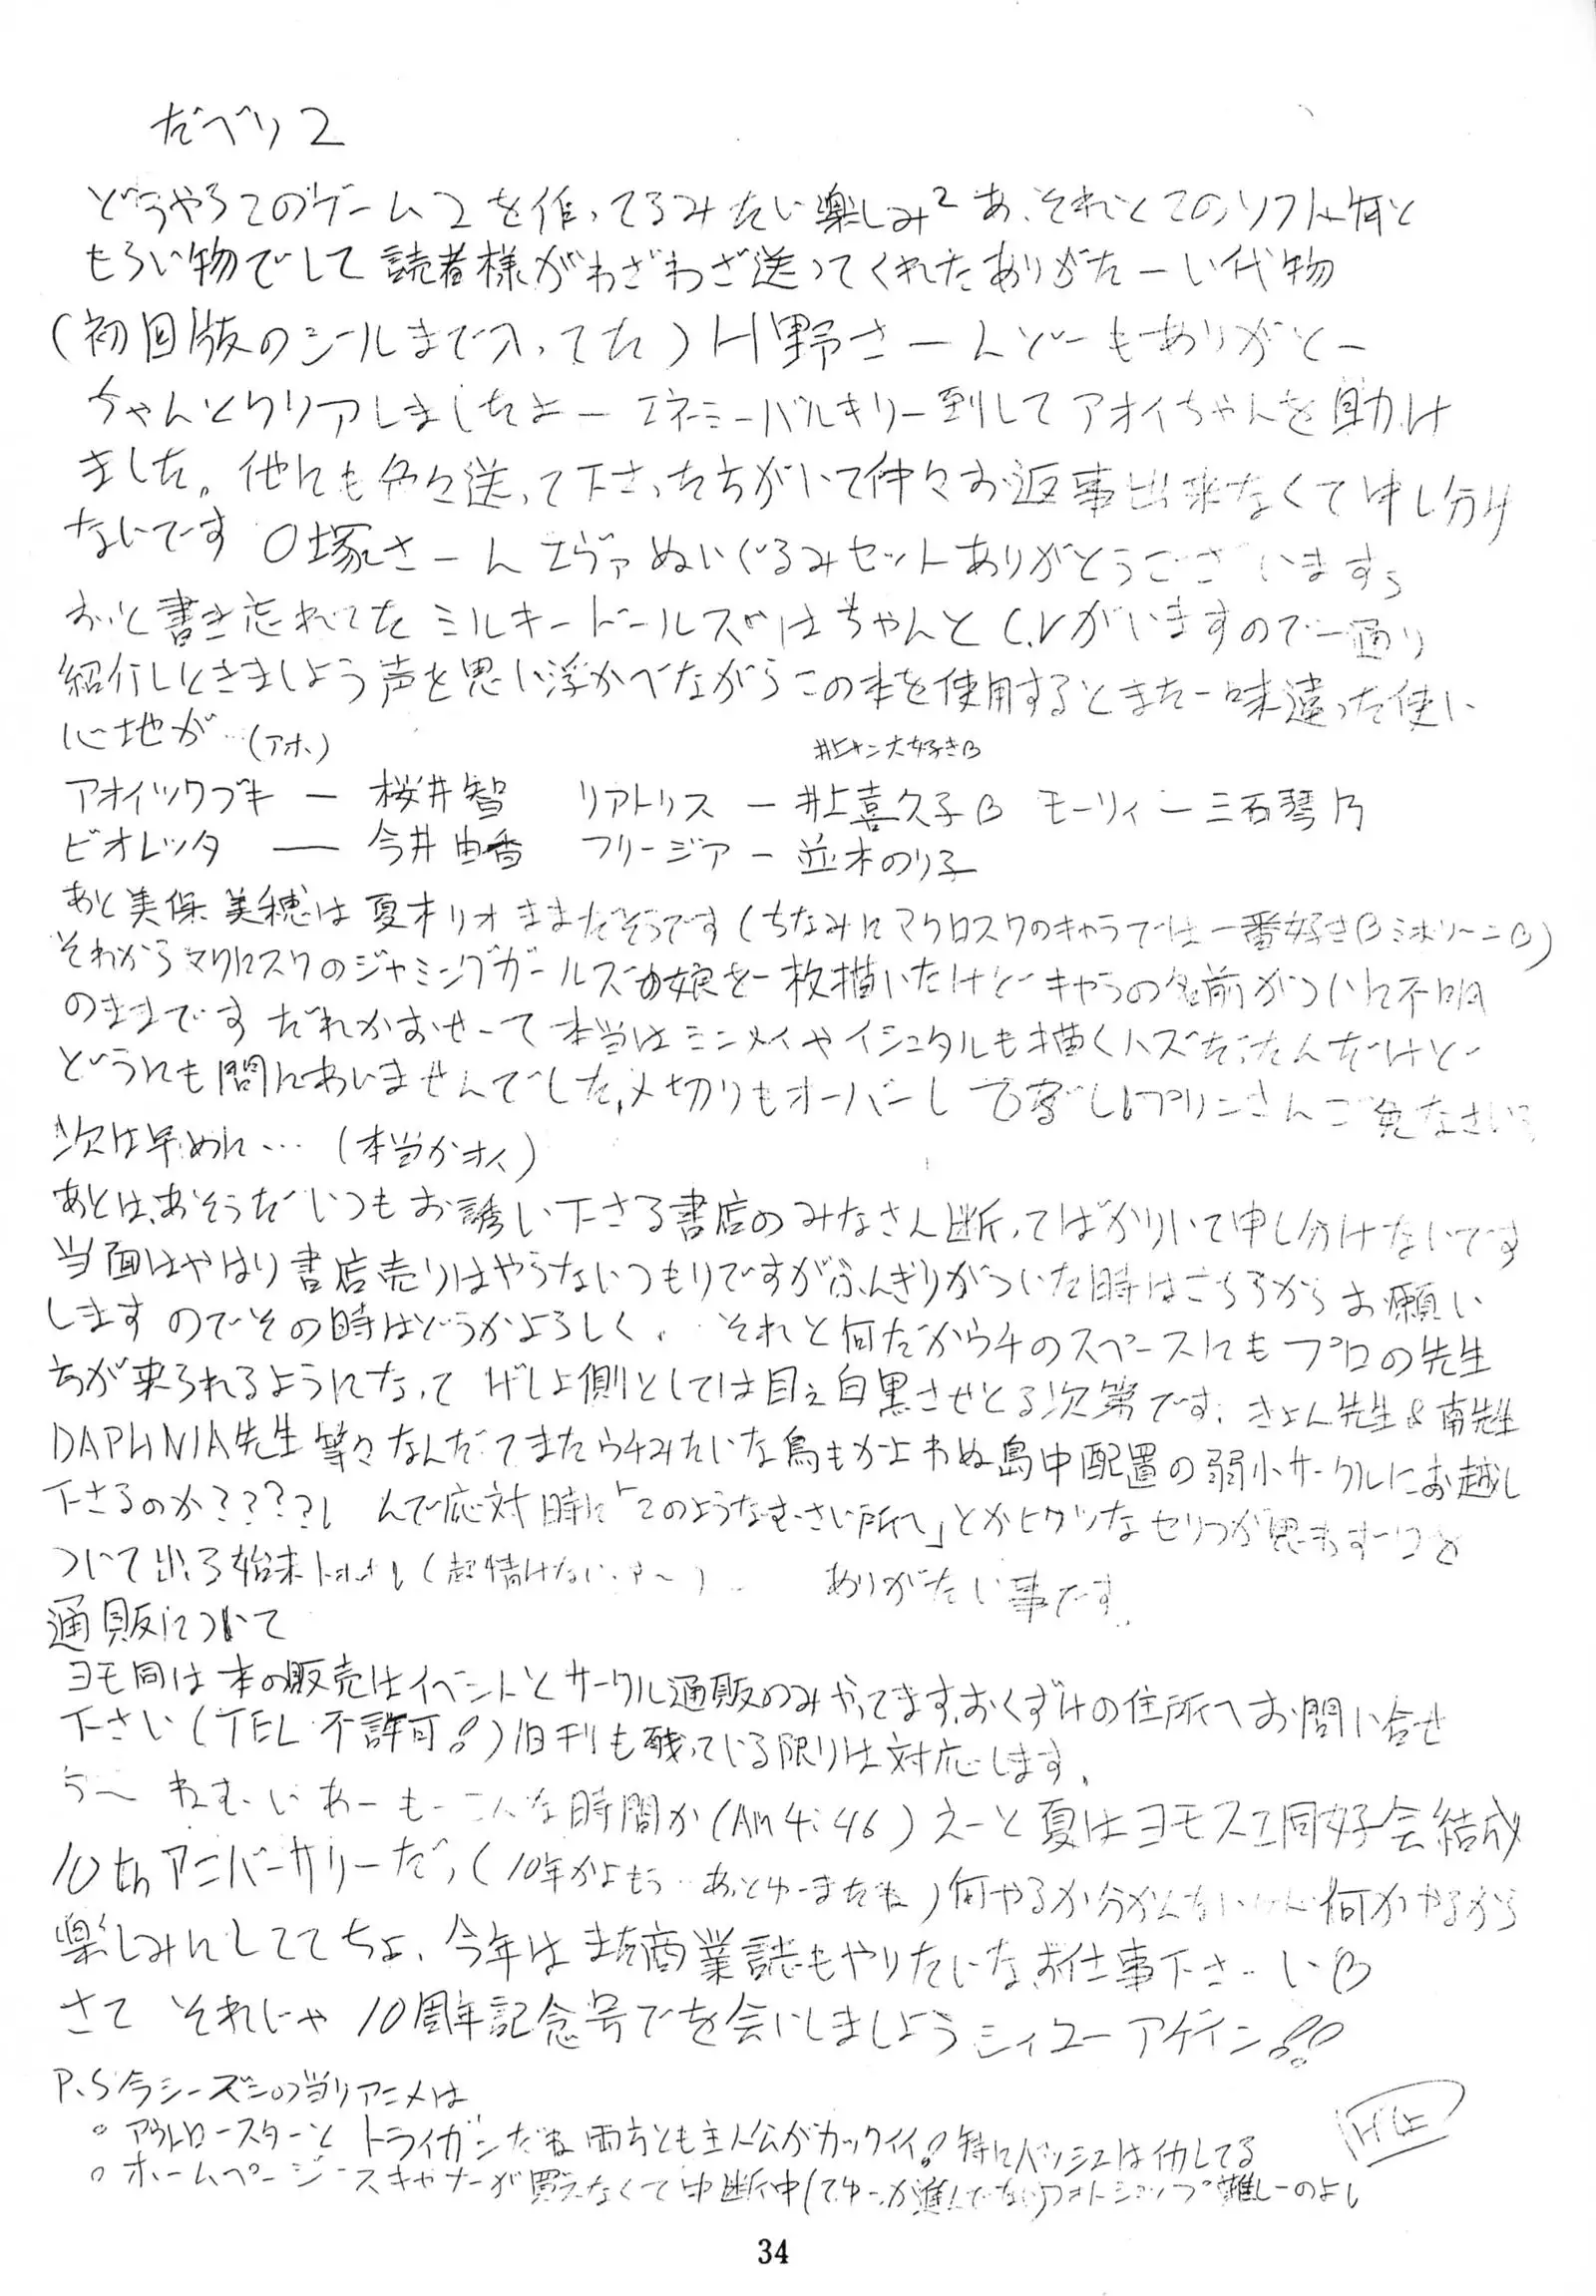 だべり2
どうやらこのゲーム2を作ってるみたい楽しみ² あ、それとこのソフト何と
もらい物でして読者様がわざわざ送ってくれたありがたーい代物
(初回版のシールまで入ってた)H野さーんどーもありがとー
ちゃんとクリアしましたよー エネミーバルキリー倒してアオイちゃんを助け
ました。他にも色々送って下さった方がいて仲々お返事出来なくて申し分け
ないです O塚さーん エヴァぬいぐるみセットありがとうございます。
おっと書き忘れてた ミルキードールズはちゃんとC.Vがいますので一通り
紹介しときましょう声を思い浮かべながらこの本を使用するとまた一味違った使い
心地が…(アホ)
井上サン大好き♡
アオイツワブキ ー 桜井智 リアトリス ー 井上喜久子♡ モーリィ ー 三石琴乃
ビオレッタ ー 今井由香 フリージア ー 並木のり子
あと美保美穂は夏木リオ ままだそうです(ちなみにマクロスクのキャラでは一番好き♡ミホリーニ♡)
それからマクロスクのジャミングガールズの娘を一枚描いたけどキャラの名前がついに不明
のままです だれかおせーて 本当はミンメイやイシュタルも描くハズだったんだけど
どうにも間にあいませんでした。〆切りもオーバーし プリンさんご免なさい
次は早めに…(本当かオイ)
あとは、あそうだ いつもお誘い下さる書店のみなさん断ってばかりいて申し分けないです
当面はやはり書店売りはやらないつもりですがふんぎりがついた時はこちらからお願い
します のでその時はどうかよろしく。 それと何だかウチのスペースにもプロの先生
ちが来られるようになって げしょ側としては目ェ白黒させとる次第です。きょん先生&南先生
DAPHNIA先生等々なんだってまたウチみたいな鳥もかよわぬ島中配置の弱小サークルにお越し
下さるのか???? んで応対時に「このようなむさい所へ」とかヒクツなセリフが思わず口を
ついて出る始末 (超情けないっすー) ありがたい事です
通販について
ヨモ同は本の販売はイベントとサークル通販のみやってます。おくずけの住所へお問い合せ
下さい(TEL不許可!)旧刊も残っている限りは対応します。
うー ねむい わーもーこんな時間か(AM4:46)えーと夏はヨモスエ同好会結成
10thアニバーサリーだっ(10年かよもう あっとゆーまだね)何やるか分かんないけど何かやるから
楽しみにしててちょ。今年はまた商業誌もやりたいな、お仕事下さーい♡
さて それじゃ 10周年記念号でを会いしましょう シィユーアゲイン!!
P.S今シーズンの当りアニメは
○ アウトロースターと トライガンだね 両方とも主人公がカックイイ!特にバッシュはイカしてる
○ ホームページ スキャナーが買えなくて中断中(てゆーか進んでない)フォトショップ難しーのよし
34